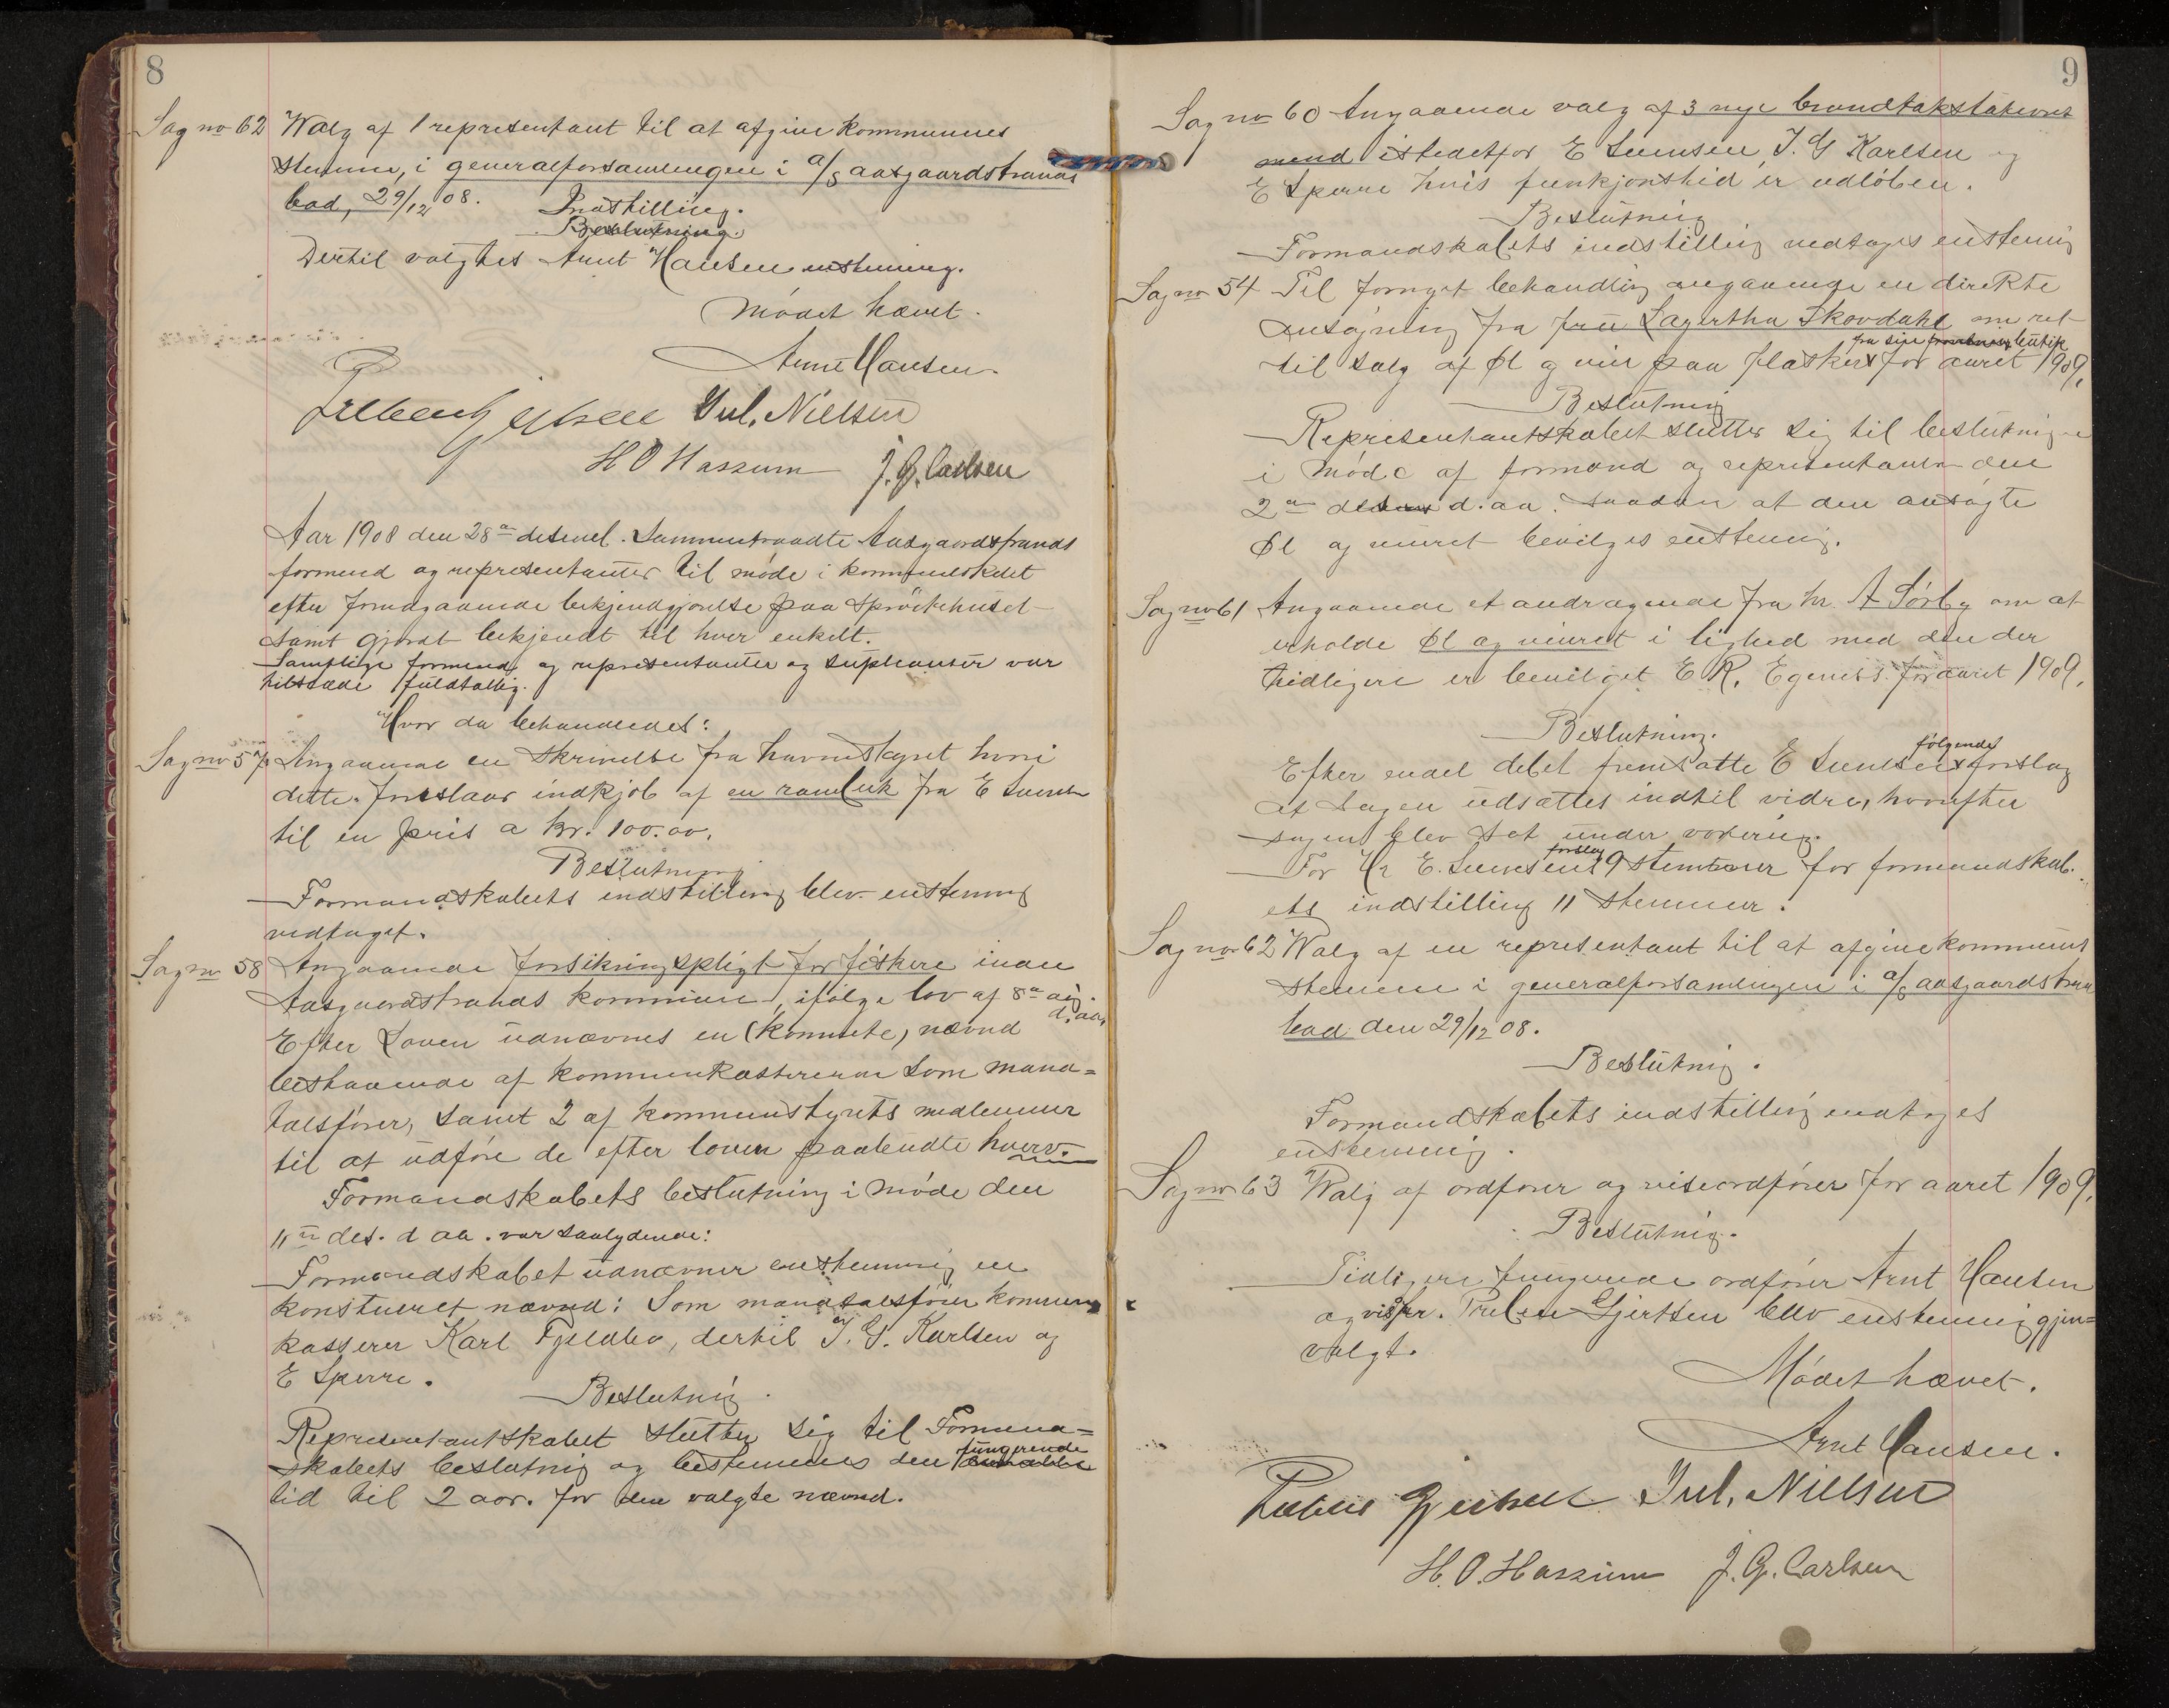 8
Sag no 62 Walg af 1 representant til at afgive kommunens
stemme, i generalforsamlingen i a/s aasgaardstrands
bad, 29/12 08. Indstilling.
Beslutning.
Dertil valgtes Arnt Hansen enstemmig.
Mødet hævet.
Arnt Hansen.
Preben Gjertsen Jul. Nielsen
H O Hassum J. G. Carlsen
Aar 1908 den 28de desembr. Sammentraadte Aasgaardstrands
formend og representanter til møde i kommunelokalet
efter forudgaaende bekjendtgjørelse paa Sprøitehuset
samt gjordt bekjendt til hver enkelt.
Samtlige formend og representanter og supleanter var
tilstæde fuldtallig.
Hvor da behandledes:
Sag no 57. Angaaende en skrivelse fra havnestyret hvori
dette foreslaar indkjøb af en rambuk fra E Svensen
til en pris a kr. 100.00.
Beslutning
Formandskabets indstilling blev enstemmig
vedtaget.
Sag no 58 Angaaende forsikringspligt for fiskere inden
Aasgaardstrands kommune, ifølge lov af 8de aug.
d. aa.
Efter Loven udnævnes en (komite) nævnd
bestaaende af kommunekassereren som mand=
talsfører, samt 2 af kommunestyrets medlemmer
til at udføre de efter loven paabudte hverv.
Formandskabets beslutning i møde den
11te des. d aa. var saalydende:
Formandskabet udnævner enstemmig en
konstueret nævnd: Som mandtalsfører kommune
kasserer Karl Fjeldbo, dertil J. G. Karlsen og
E Sperre.
Beslutning.
Representantskabet slutter sig til Formand=
skabets beslutning og bestemmes den fungerende
tid til 2 aar. for den valgte nævnd.
9
Sag no 60 Angaaende valg af 3 nye brandtakstations
mend istedetfor E Svensen, J. G Karlsen og
E Sperre hvis funkjonstid er udløben.
Beslutning
Formandskabets indstilling vedtages enstemig
Sag no 54 Til fornyet behandling angaaende en direkte
ansøgning fra fru Lagertha Skovdahl om ret
fra sin butik
til salg af Øl og vin paa flasker x for aaret 1909.
Beslutning
Representantskabet slutter sig til beslutningen
i møde af formænd og representanter den
2den d. aa. saadan at den ansøgte
Øl og vinret bevilges enstemig.
Sag no 61 Angaaende et andragende fra hr. A Sørby om at
erholde Øl og vinret i lighed med den der
tidligere er bevilget E R. Egeness for aaret 1909.
Beslutning.
følgende
Efter endel debat fremsatte E Svensen x forslag
at Sagen udsættes indtil vidre, hvorefter
sagen blev sat under votering.
forslag
For Hr E. Svensens 9 stemmer for formandskab=
ets indstilling 11 stemmer.
Sag no 62 Walg af en representant til at afgive kommunens
stemme i generalforsamlingen i a/s aasgaardstrands
bad den 29/12 08.
Beslutnig.
Formandskabets indstilling vedtages
enstemmig.
Sag no 63 Walg af ordfører og viseordfører for aaret 1909.
Beslutnig.
Tidligere fungerende ordfører Arnt Hansen
og viseofr. Preben Gjertsen blev enstemmig gjen=
valgt.
Mødet hævet.
Arnt Hansen.
Preben Gjertsen Jul. Nielsen
H. O. Hassum J. G. Carlsen